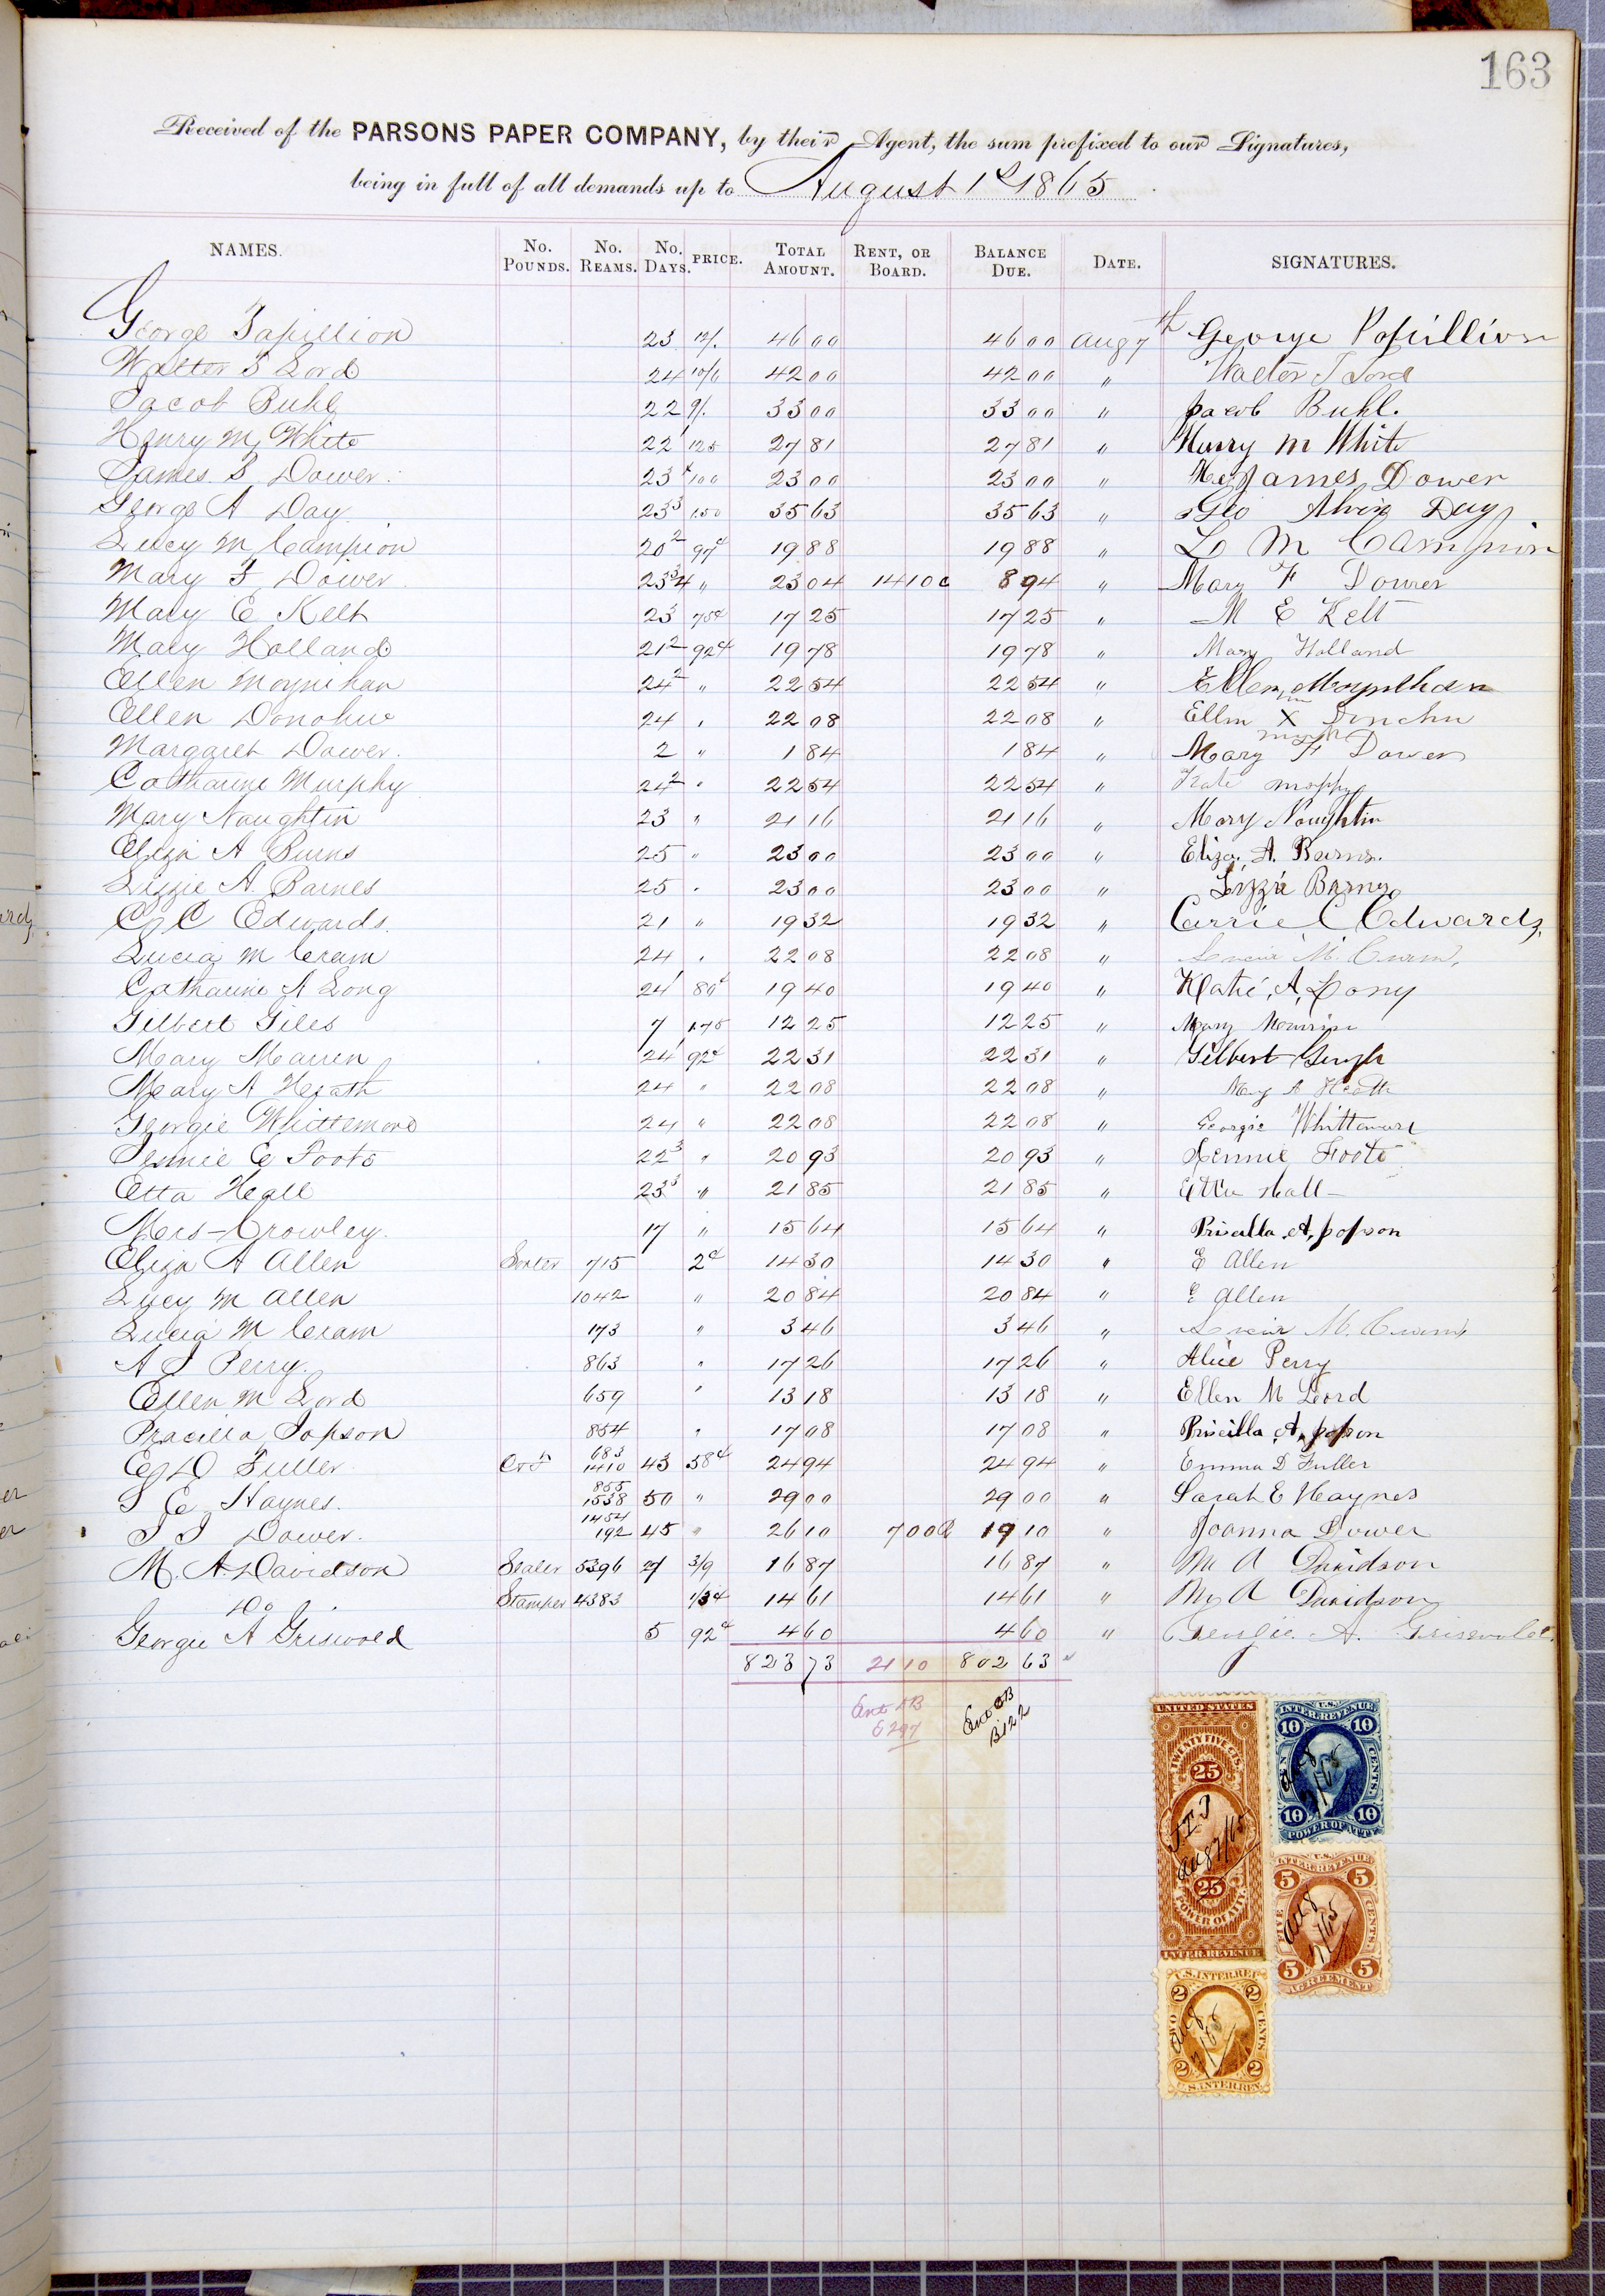 163
Received of the PARSONS PAPER COMPANY, by their Agent, the sum prefixed to our Signatures,
being in full of all demands up to August 1st 1865
NAMES. No. POUNDS. No. REAMS. No. DAYS. PRICE. TOTAL AMOUNT. RENT, OR BOARD. BALANCE DUE. DATE. SIGNATURES.
George Papillion 23 12/. 46 00 46 00 Aug 7th George Papillion
Walter T Lord 24 10/6 42 00 42 00 " Walter T Lord
Jacob Buhl 22 9/. 33 00 33 00 " Jacob Buhl.
Henry M White 22 1 125 27 81 27 81 " Henry M White
James S Dower. 23 100 23 00 23 00 " James Dower
George A Day 23 3 1.50 35 63 35 63 " Geo Alvin Day
Lucy M Campion 20 2 97c 19 88 19 88 " L M Campion
Mary F Dower. 23 3/4 " 23 04 14 10 c 8 94 " Mary F Dower
Mary E Kelt 23 75c 17 25 17 25 " M E Kelt
Mary Holland 21 2 92c 19 78 19 78 " Mary Holland
Ellen Moynihan 24 2 " 22 54 22 54 " Ellen Moynihan
Ellen Donohue 24 " 22 08 22 08 " Ellen X Donohu
Margaret Dower. 2 " 1 84 1 84 " Mary F Dower
Catharine Murphy 24 2 " 22 54 22 54 " Kate Murphy
Mary Naughtin 23 " 21 16 21 16 " Mary Naughtin
Eliza A Burns 25 " 23 00 23 00 " Eliza. A. Burns.
Lizzie A. Barnes 25 " 23 00 23 00 " Lizzie Barnes
C C Edwards. 21 " 19 32 19 32 " Carrie C Edwards.
Lucia M Cram 24 " 22 08 22 08 " Lucia M. Cram.
Catharine A Long 24 1 80c 19 40 19 40 " Katie, A, Long
Gilbert Giles 7 1.75 12 25 12 25 " Mary
Mary Marren 24 1 92c 22 31 22 31 " Gilbert
Mary A Heath 24 " 22 08 22 08 " Mary A Heath
Georgie Whittemore 24 " 22 08 22 08 " Georgie Whittemore
Jennie E Foote 22 3 " 20 93 20 93 " Jennie Foote
Etta Hall 23 3 " 21 85 21 85 " Etta Hall
Mrs Crowley. 17 " 15 64 15 64 " Priscilla A, Jopson
Eliza A Allen Sorter 715 2c 14 30 14 30 " E Allen
Lucy M Allen 1042 " 20 84 20 84 " E Allen
Lucia M Cram 173 " 3 46 3 46 " Lucia M. Cram
A J Perry. 863 " 17 26 17 26 " Alice Perry
Ellen M Lord 659 " 13 18 13 18 " Ellen M Lord
Pracilla Jopson 854 " 17 08 17 08 " Priscilla, A, Jopson
E D Fuller 683 1410 43 58c 24 94 24 94 " Emma D Fuller
S E Haynes. 855 1538 50 " 29 00 29 00 " Sarah E Haynes
J J Dower. 1454 192 45 " 26 10 7 00 19 10 " Joanna Dower
M. A. Davidson Sealer 5396 27 3/9 16 87 16 87 " M A Davidson
Do Stamper 4383 1/3c 14 61 14 61 " M A Davidson
Georgie A Griswold 5 92c 4 60 4 60 " Georgie. A. Griswold.
823 73 21 10 802 63
Ent B Ent CB
B122
UNITED STATES
TWENTY FIVE CTS.
25
Aug 7/65
25
POWER OF ATTY.
INTER. REVENUE
U.S. INTER. REVENUE
10 10
TEN CENTS.
Aug 7/65
10 10
POWER OF ATTY
U.S. INTER. REVENUE
5 5
FIVE CENTS.
Aug 7/65
5 5
AGREEMENT
U.S. INTER. REV.
2 2
TWO CENTS
Aug 7/65
2 2
U.S. INTER. REV.